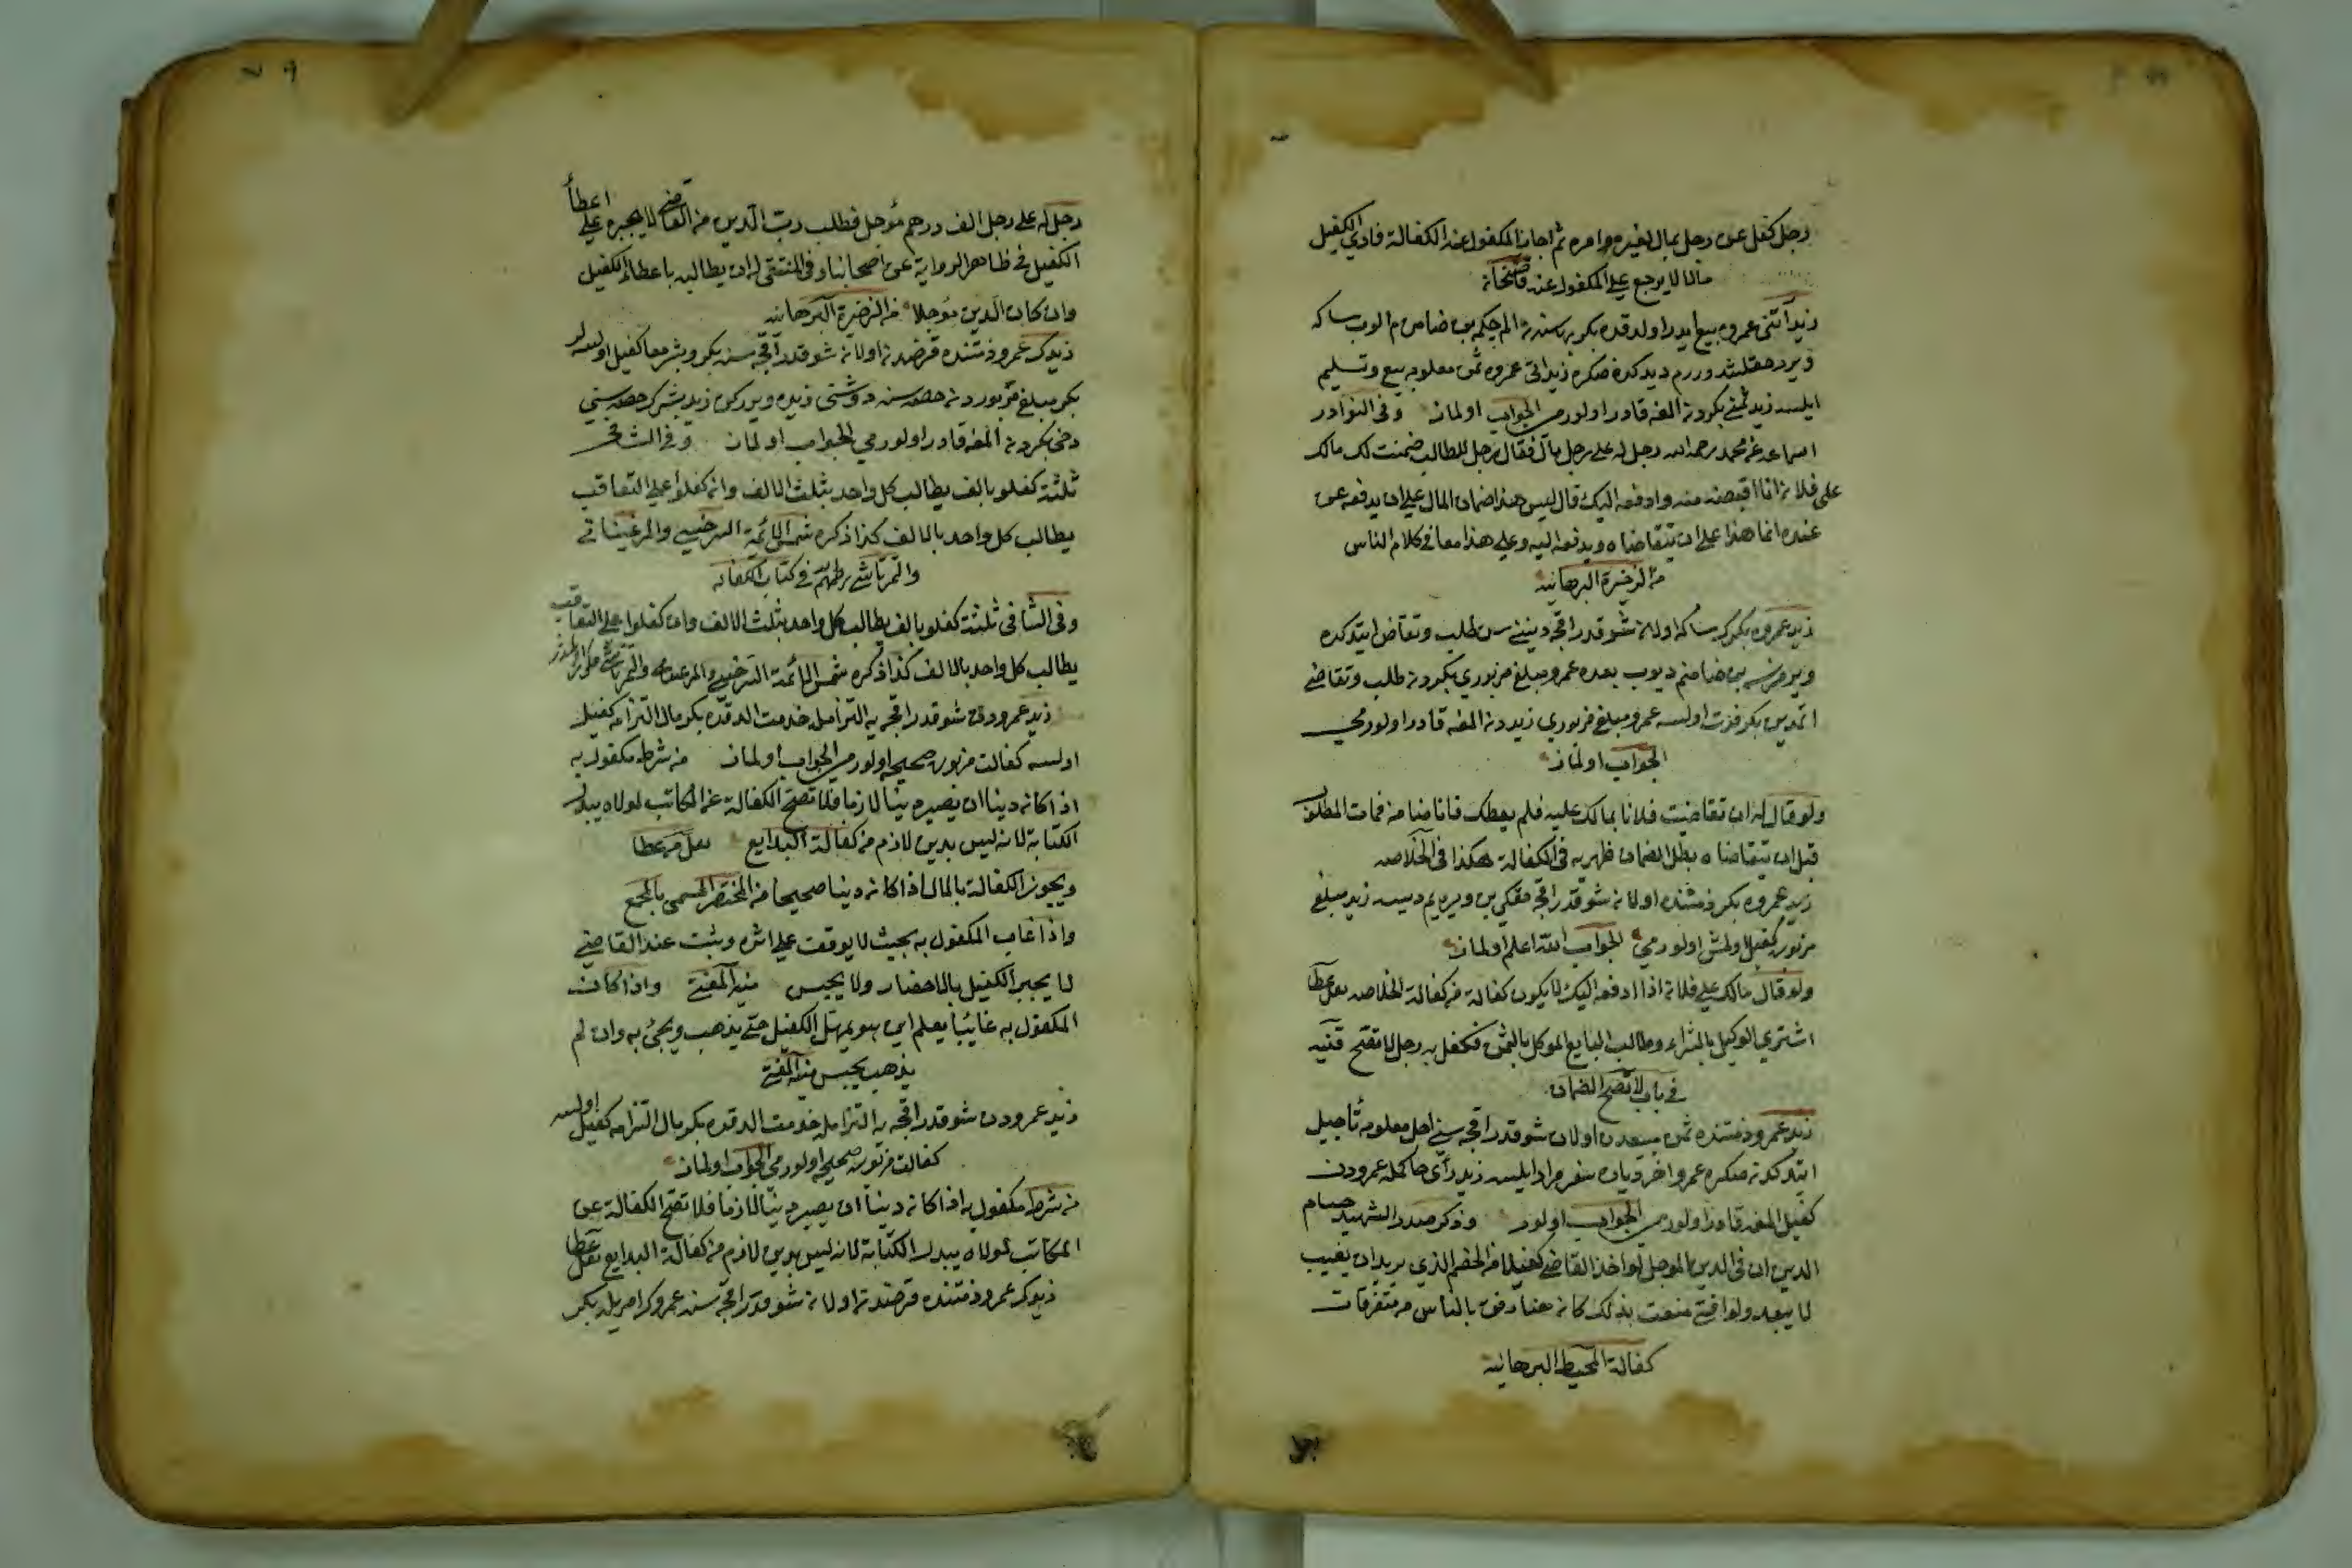 رجل كفل عن رجل بمال بغير امره ثم اجاز المكفول عنه الكفالة فادي الكفيل
مالا لا يرجع على المكفول عنه قاضيخان
زيد آتني عمروه بيع ايدر اولدقده بكر بن ضامن
ويردحقلشدوررم ديدكدنصكره زيد اتي عمروه ثمن معلومه بيع وتسليم
ايلسه زيد ثمني بكردن المغه قادر اولورمي الجواب اولماز وفي النوادر
سماعه عن محمد رحمه الله رجل له على رجل مال فقال رجل للطالب ضمنت لك مالك
على فلان انا اقبضه منه وادفعه اليك قال ليس هذا ضمان المال على ان يدفعه من
عنده انما هذا على ان يتقاضاه ويدفعه اليه وعلى هذا معاني كلام الناس
من الذخيرة البرهانيه
زيد عمروه بكرك سكا اولان شو قدر اقچه ديننى سن طلب وتقاضا ايتدكده
ويرمزسه بن ضامنم ديوب بعده عمرو مبلغ مزبوري بكردن طلب وتقاضي
اتمدين بكر فوت اولسه عمرو مبلغ مزبوري زيددن المغه قادر اولورمي
الجواب اولماز
ولو قال له ان تقاضيت فلانا بمالك عليه فلم يعطك فانا ضامن فمات المطلوب
قبل ان يتقاضاه بطل الضمان ظهريه في الكفالة هكذا في الخلاصه
زيد عمروه بكر ذمتنده اولان شو قدر اقچه حقكي بن ويره يم ديسه زيد مبلغ
مزبوره كفيل اولمش اولورمي الجواب الله اعلم اولماز
ولو قال مالك على فلان انا ادفعه اليك لا يكون كفالة من كفالة الخلاصه نقل عطا
اشتري الوكيل بالشراء وطالب البايع الموكل بالثمن فكفل به رجل لا تصح قنيه
في باب لا تصح الضمان
زيد عمرو ذمتنده ثمن مبيعدن اولان شو قدر اقچه سني اجل معلومه تأجيل
ايتدكدنصكره عمرو اخر دياره سفر مراد ايلسه زيد رأي حاكمله عمرودن
كفيل المغه قادر اولورمي الجواب اولور وذكر صدر الشهيد حسام
الدين ان في الدين المؤجل لو اخذ القاضي كفيلا من الخصم الذي يريد ان يغيب
لا يبعد ولو افتي مفت بذلك كان حسنا رفق بالناس من متفرقات
كفالة المحيط البرهانيه
٧٩
رجل له على رجل الف درهم مؤجل فطلب رب الدين من القاضي لا يجبره على اعطأ
الكفيل في ظاهر الرواية عن اصحابنا وفي المنتقي له ان يطالبه باعطاء الكفيل
وان كان الدين مؤجلا من الذخيرة البرهانيه
زيدك عمرو ذمتنده قرضدن اولان شو قدر اقچه سنه بكر وبشر معا كفيل اولسه لر
بكر مبلغ مزبوردن حصه سنه دوشني زيده ويردكده زيد بشرك حصه سني
دخي بكردن المغه قادر اولورمي الجواب اولماز وفي الشافي
ثلثة كفلو بالف يطالب كل واحد بثلث الالف وان كفلوا على التعاقب
يطالب كل واحد بالالف كذا ذكره شمس الائمة السرخسي والمرغيناني
والتمرتاشي في كتاب الكفاله
وفي الشافي ثلثة كفلو بالف يطالب كل واحد بثلث الالف وان كفلوا على التعاقب
يطالب كل واحد بالالف كذا ذكره شمس الائمة السرخسي والمرغيناني والتمرتاشي
زيد عمرودن شو قدر اقچه يه التزامله خدمت الدقده بكر مال التزامه كفيل
اولسه كفالت مزبوره صحيحه اولورمي الجواب اولماز من شرط مكفول به
اذا كان دينا ان يصير دينا لازما فلا تصح الكفالة عن المكاتب لمولاه ببدل
الكتابة لانه ليس بدين لازم من كفالة البدايع نقل من عطا
ويجوز الكفالة بالمال اذا كان دينا صحيحا من المختصر المسمى بالمجمع
واذا غاب المكفول به بحيث لا يوقف على اثره وثبت عند القاضي
لا يجبر الكفيل بالاحضار ولا يحبس منية المفتي واذا كان
المكفول به غائبا يعلم اين هو يمهل الكفيل حتي يذهب ويجئ به وان لم
يذهب يحبس منية المفتي
زيد عمرودن شو قدر اقچه يه التزامله خدمت الدقده بكر مال التزامه كفيل اولسه
كفالت مزبوره صحيحه اولورمي الجواب اولماز
من شرط مكفول به اذا كان دينا ان يصير دينا لازما فلا تصح الكفالة عن
المكاتب لمولاه ببدل الكتابة لانه ليس بدين لازم من كفالة البدايع نقل عطا
زيدك عمرو ذمتنده قرضدن اولان شو قدر اقچه سنه عمروك امريله بكر